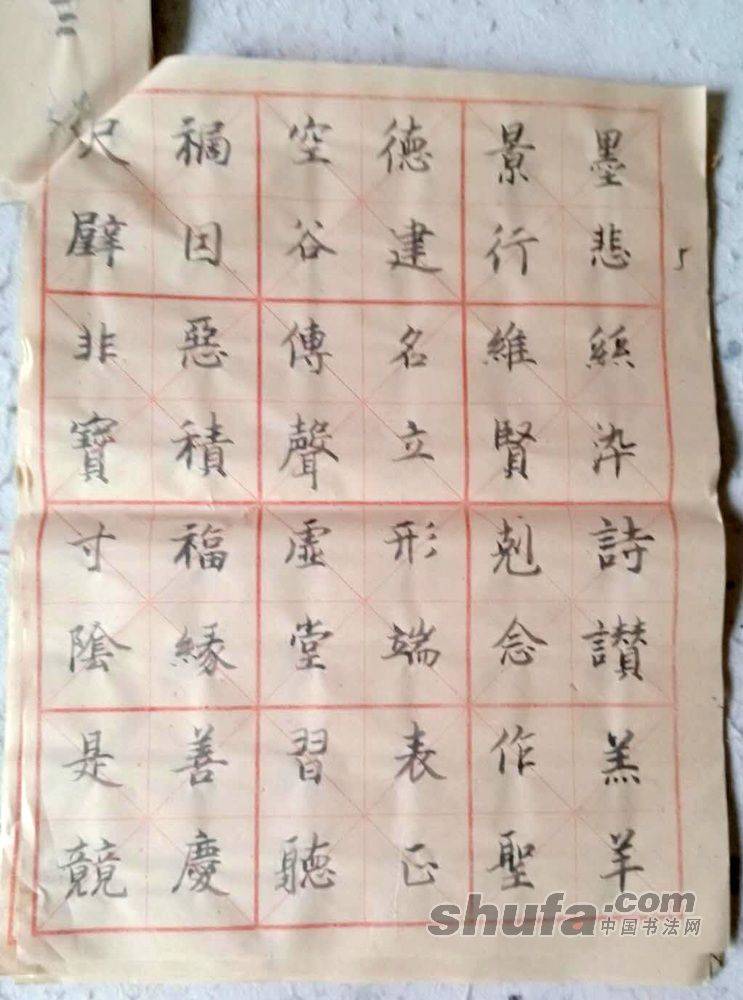 墨悲絲染詩讚羔羊
景行維賢剋念作聖
德建名立形端表正
空谷傳聲虛堂習聽
禍因惡積福緣善慶
尺璧非寶寸陰是競
5
shufa.com
中国书法网